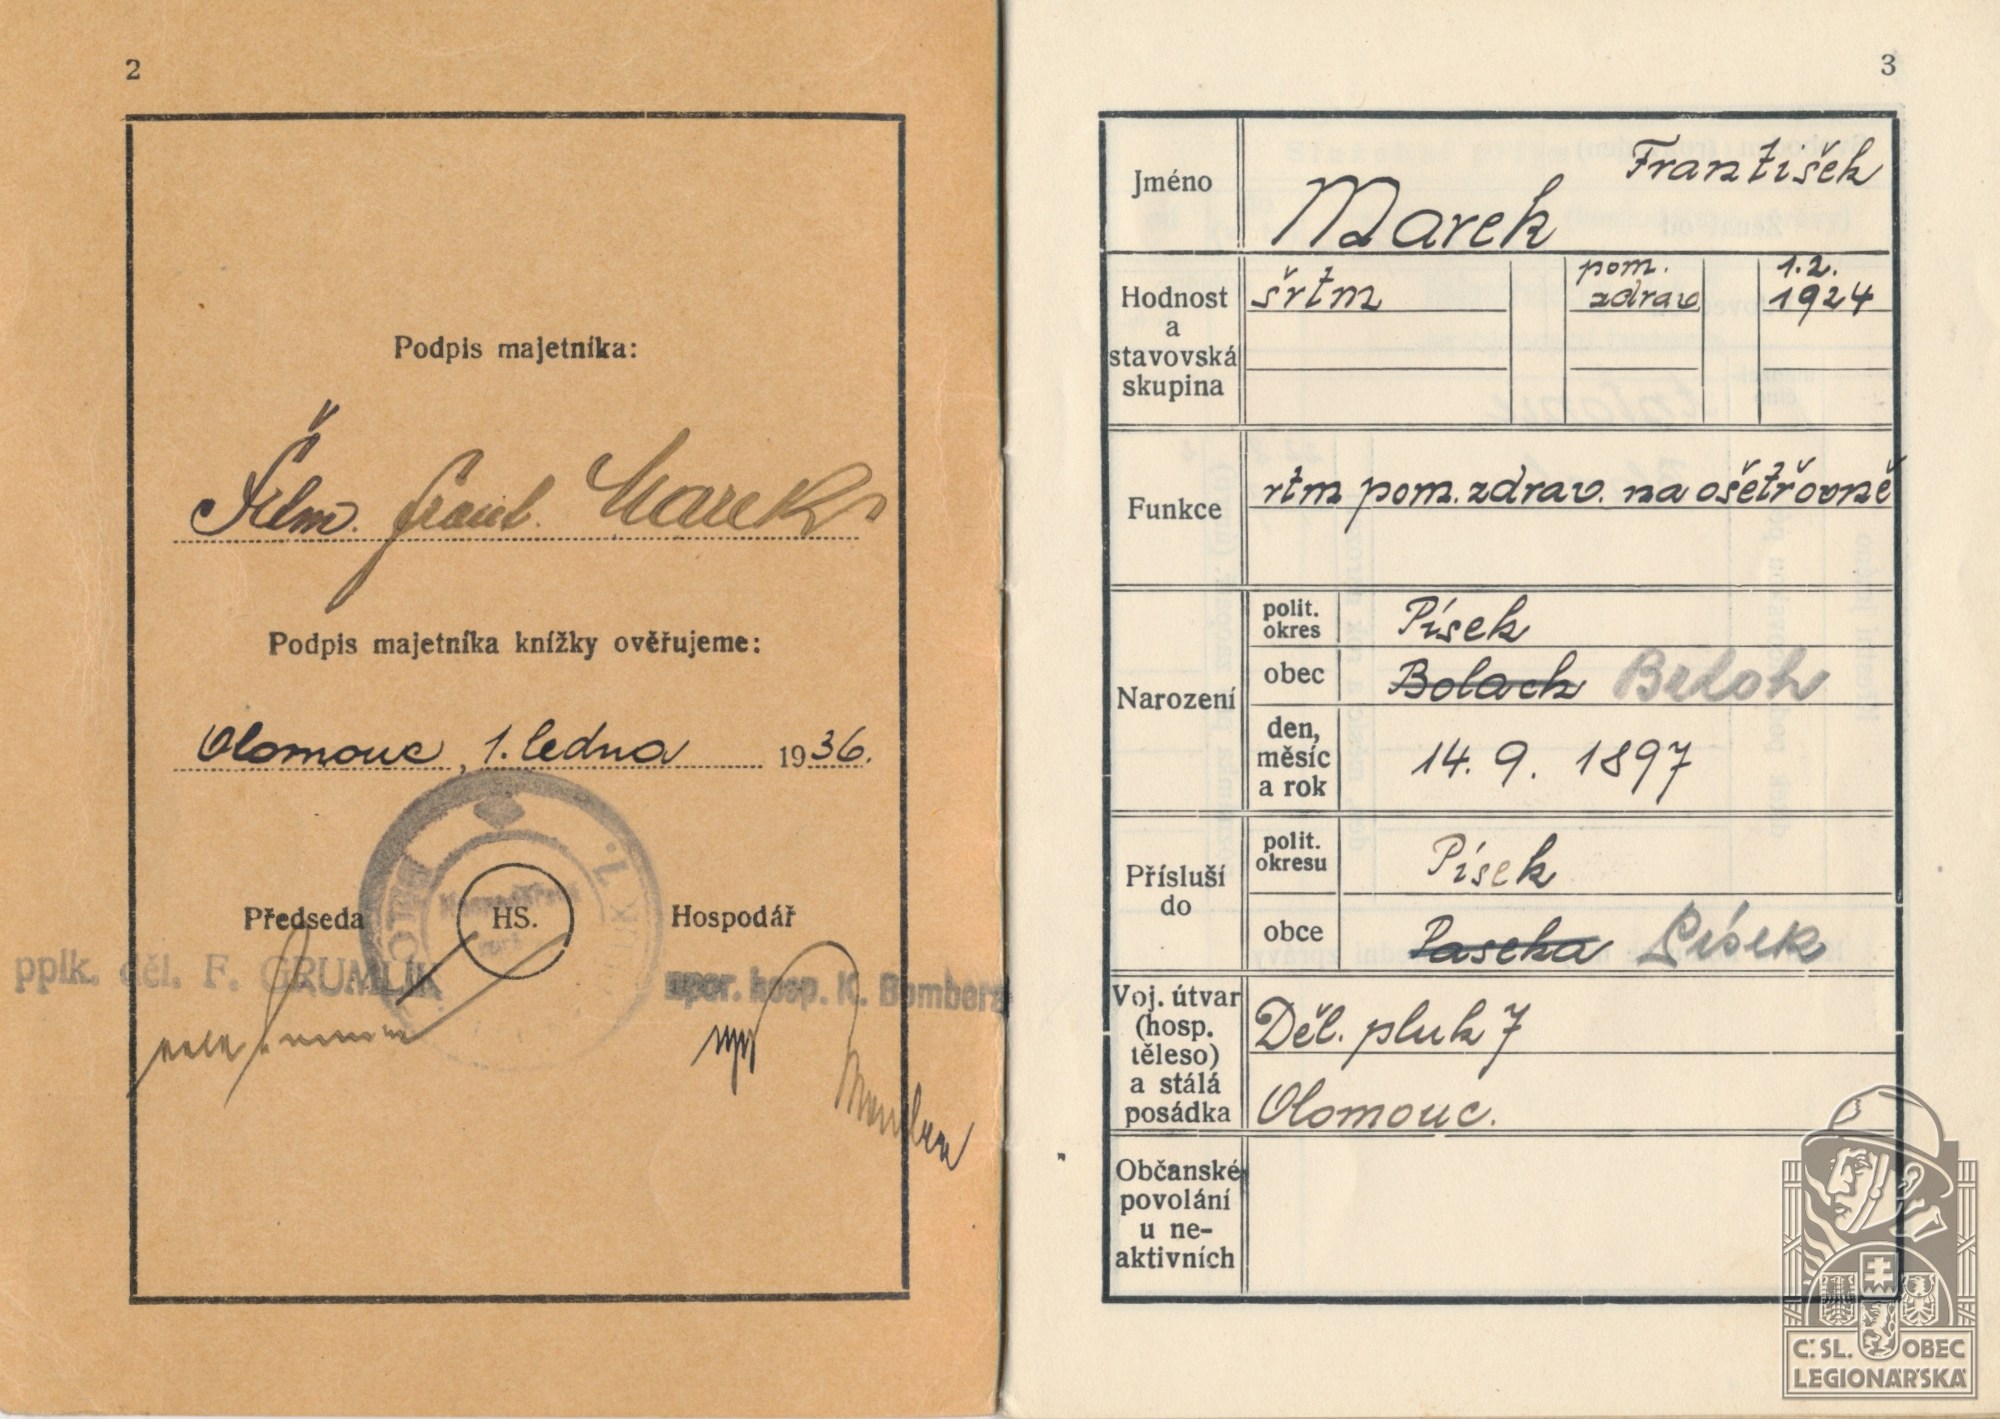 2
Podpis majetníka:
Marek
Podpis majetníka knížky ověřujeme:
Olomouc, 1. ledna 1936.
Předseda
HS.
Hospodář
pplk. děl. F. GRUMLÍK
hosp. K. Bombera
3
Jméno
František
Marek
Hodnost
a
stavovská
skupina
šrtm
pom.
zdrav
1.2.
1924
Funkce
rtm pom. zdrav. na ošetřovně
Narození
polit.
okres
Písek
obec
Brloh
den,
měsíc
a rok
14. 9. 1897
Přísluší
do
polit.
okresu
Písek
obce
Paseka Písek
Voj. útvar
(hosp.
těleso)
a stálá
posádka
Děl. pluk 7
Olomouc.
Občanské
povolání
u ne-
aktivních
Č. SL. OBEC
LEGIONÁŘSKÁ